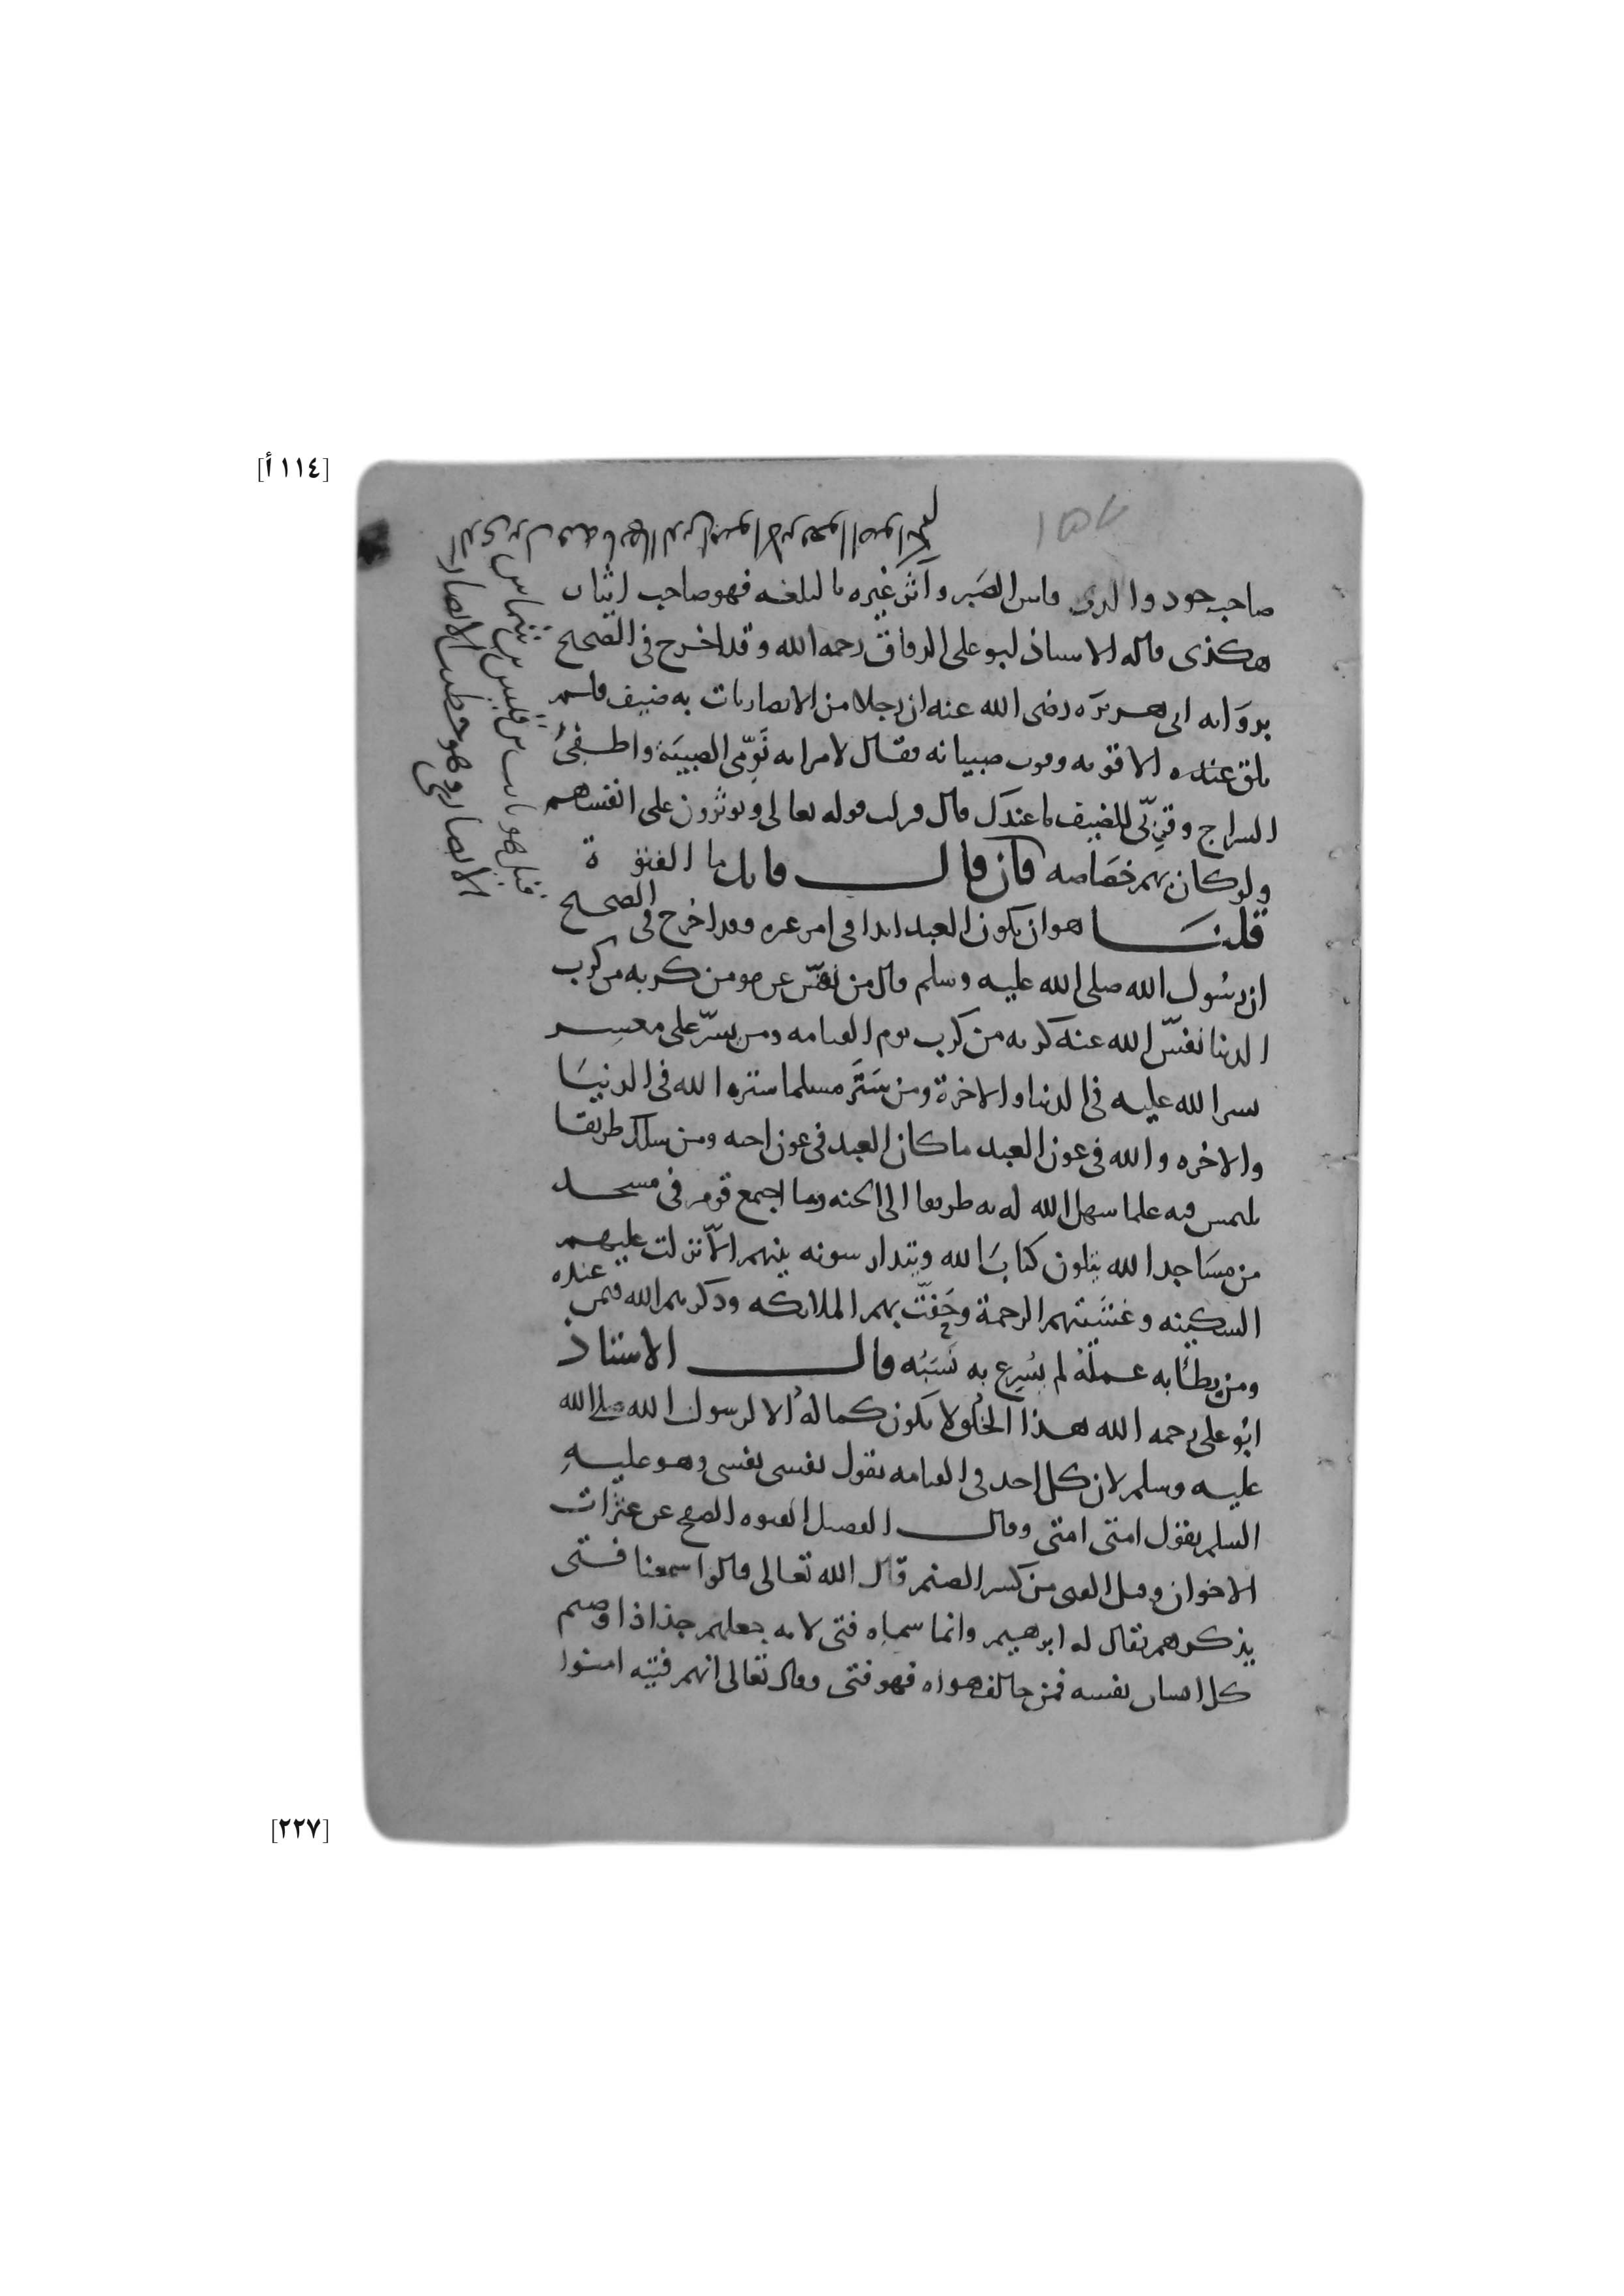 [١١٤ أ]
صاحب جود والذي قاسى الضر وآثر غيره بالبلغه فهو صاحب ايثار
هكذى قاله الاستاذ ابو على الدقاق رحمه الله وقد اخرج فى الصحيح
برواية ابى هريره رضى الله عنه ان رجلا من الانصار بات به ضيف فلم
يلق عنده الا قوته وقوت صبيانه فقال لامراته نَوِّمى الصبيَة واطفئ
السراج وقربّى للضيف ما عندك قال فنزلت قوله تعالى ويوثرون على انفسهم
ولو كان بهم خصَاصه فان قال قايل ما الفتوة
قلنا هو ان يكون العبد ابدا فى امر غيره وقد اخرج فى الصحيح
ان رسُول الله صلى الله عليه وسلم قال من نفّس عن مومن كربه من كرب
الدنيا نفسّ الله عنه كربه من كرب يوم القيامه ومن يسّر على معسر
يسر الله عليه فى الدنيا والاخرة ومن سَتَر مسلما ستره الله فى الدنيَا
والاخره والله فى عون العبد ما كان العبد فى عون اخيه ومن سلك طريقا
يلتمس فيه علما سهل الله له به طريقا الى الجنه وما اجتمع قوم فى مسجد
من مسَاجد الله يتلون كتابَ الله ويتدارسونه بينهم الاّ نزلت عليهم
السكينه وغشيتهم الرحمة وحَفّت بهم الملايكه وذكرهم الله فيمن عنده
ومن بطأ به عمله لم يسُرع به نسَبُه قال الاستاذ
ابُو على رحمه الله هذا الخلُق لا يكون كماله الا لرسول الله صلى الله
عليه وسلم لان كل احد فى القيامه يقول نفسى نفسى وهو عليه
السلم يقول امتى امتى وقال الفضيل الفتوه الصفح عن عثرات
الاخوان وقيل الفتى من كسر الصنم قال الله تعالى قالوا سمعنا فتى
يذكرهم يقال له ابرهيم وانما سماه فتى لانه جعلهم جذاذا وصنم
كل انسان نفسه فمن خالف هواه فهو فتى وقال تعالى انهم فتيه امنوا
[٢٢٧]